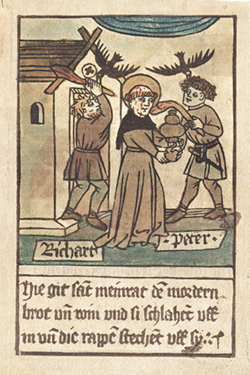 Richart
Peter
Hie git sant meinrat dē mordern
brot vn̄ win und si schlahēt vff
in vn̄ die rappē stechēt vff sy